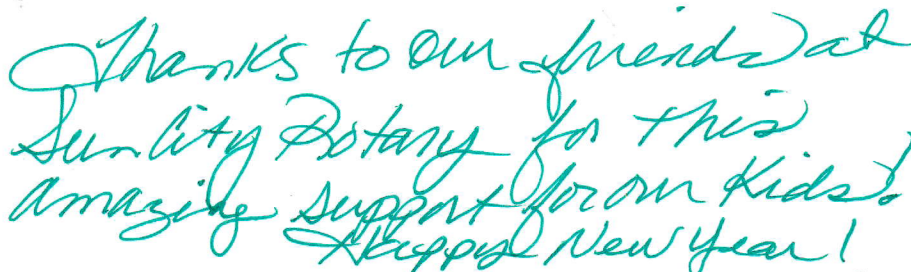 Thanks to our friends at
Sun City Rotary for this
amazing support for our Kids!
Happy New Year!